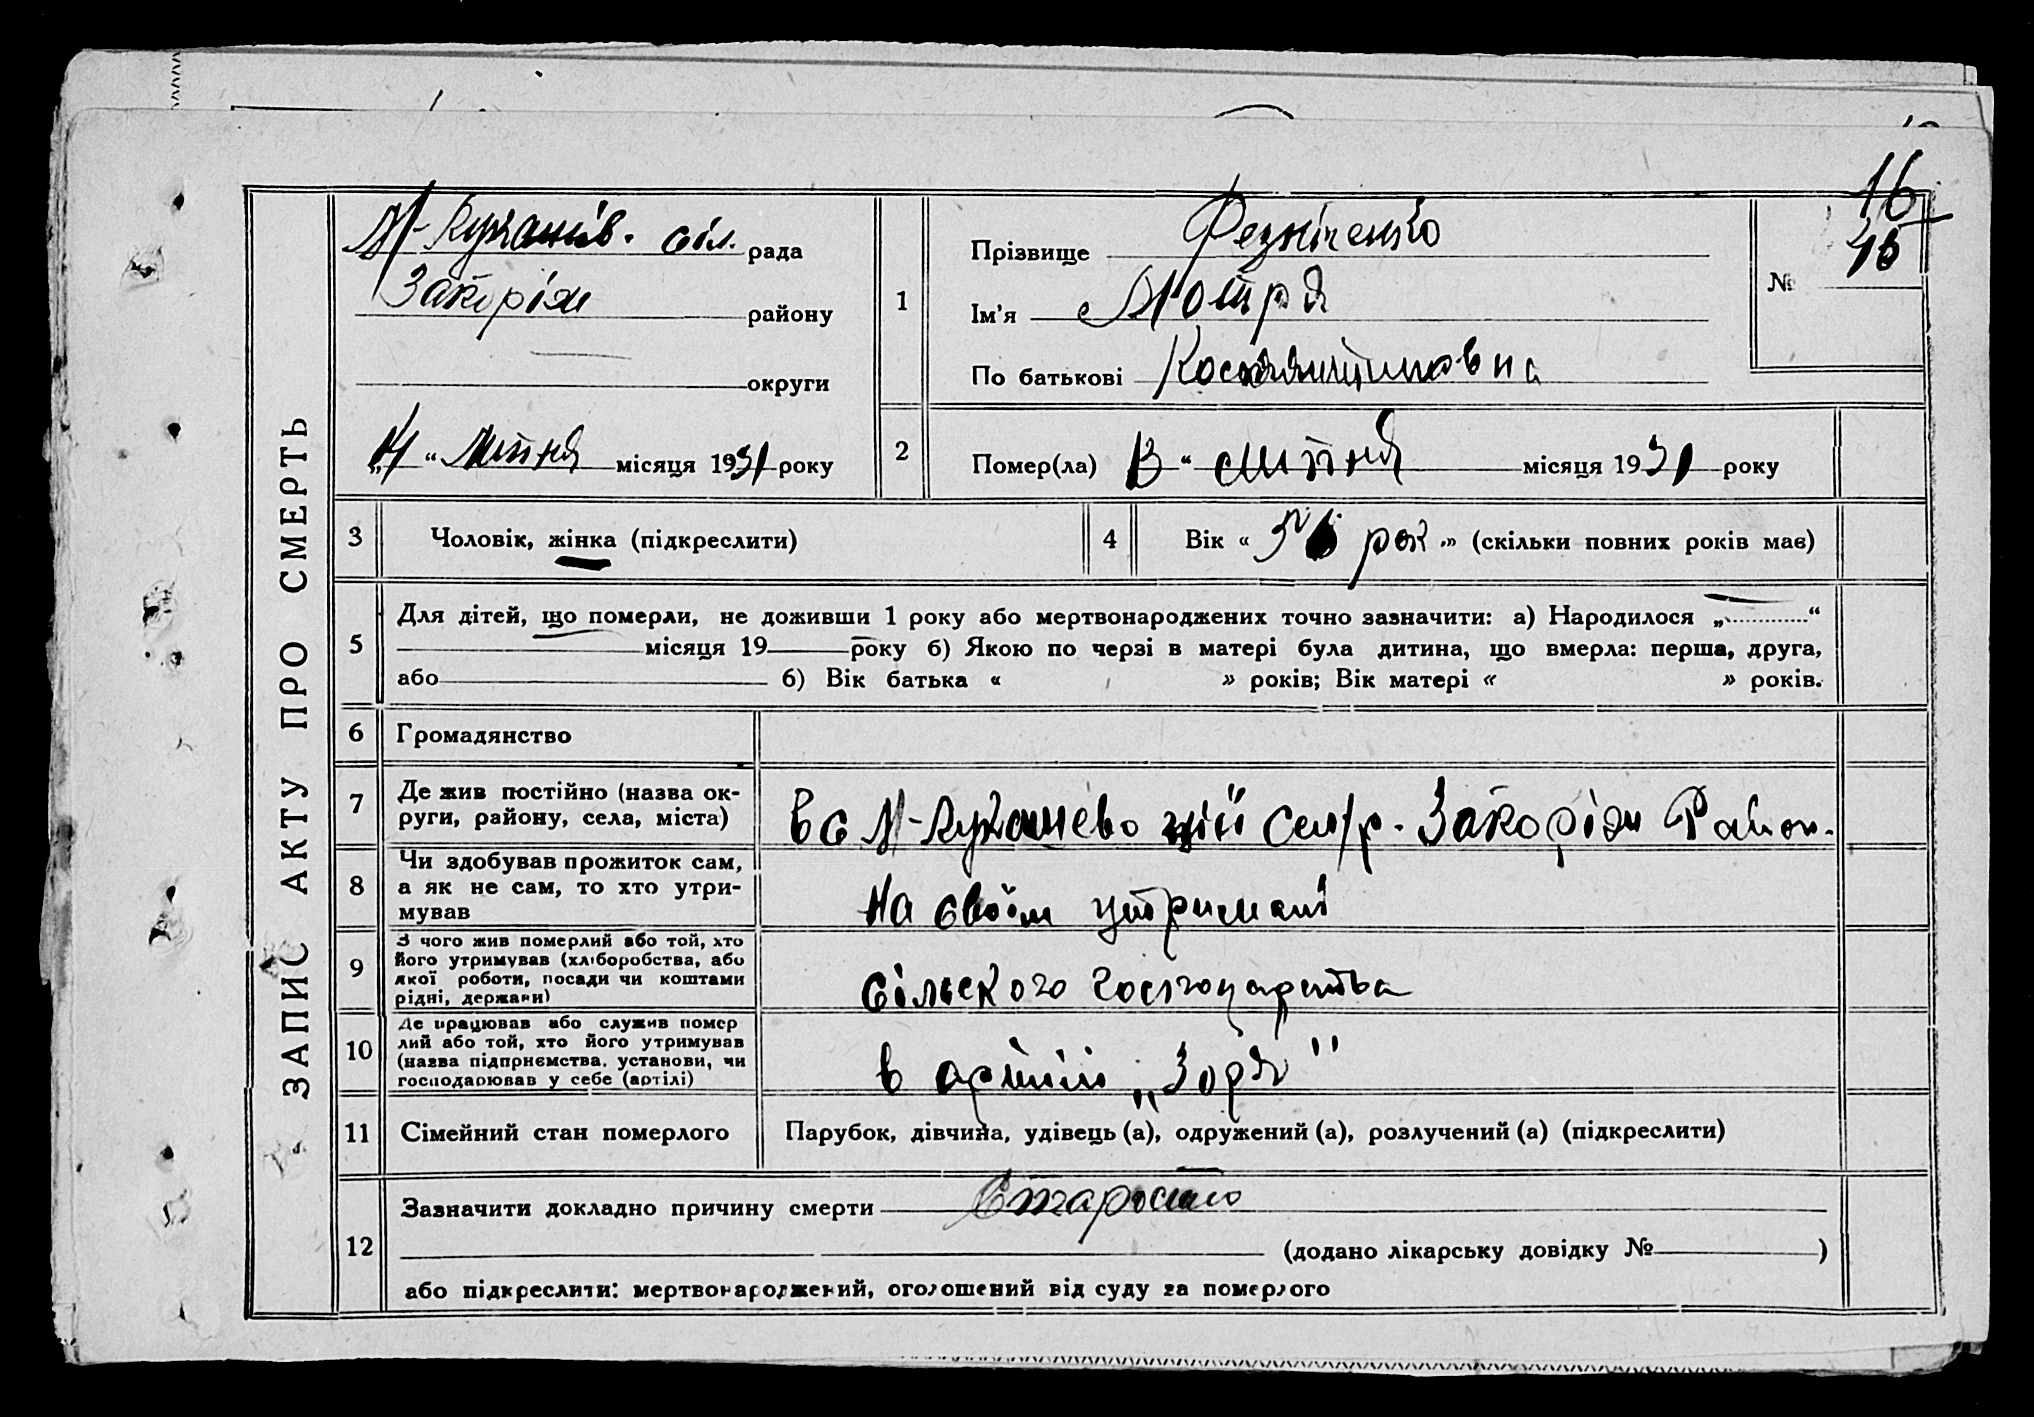 ЗАПИС АКТУ ПРО СМЕРТЬ
сіл. рада
району
округи
" Липня місяця 1931 року
1
Прізвище
Ім'я Мотря
По батькові Костянтиновна
№ 16
2
Помер(ла) " Липня місяця 1931 року
3 Чоловік, жінка (підкреслити)
4 Вік « рок » (скільки повних років має)
5
Для дітей, що померли, не доживши 1 року або мертвонароджених точно зазначити: а) Народилося „ “
місяця 19 року б) Якою по черзі в матері була дитина, що вмерла: перша, друга,
або б) Вік батька « » років; Вік матері « » років.
6 Громадянство
7 Де жив постійно (назва ок-
руги, району, села, міста)
в с цій Район.
8 Чи здобував прожиток сам,
а як не сам, то хто утри-
мував
на своїм утримані
9 З чого жив померлий або той, хто
його утримував (хліборобства, або
якої роботи, посади чи коштами
рідні, держави)
сільского господарства
10 Де працював або служив помер
лий або той, хто його утримував
(назва підприємства, установи, чи
господарював у себе (артілі)
в артілі „Зоря"
11 Сімейний стан померлого
Парубок, дівчина, удівець (а), одружений (а), розлучений (а) (підкреслити)
12
Зазначити докладно причину смерти
(додано лікарську довідку № )
або підкреслити: мертвонароджений, оголошений від суду за померлого